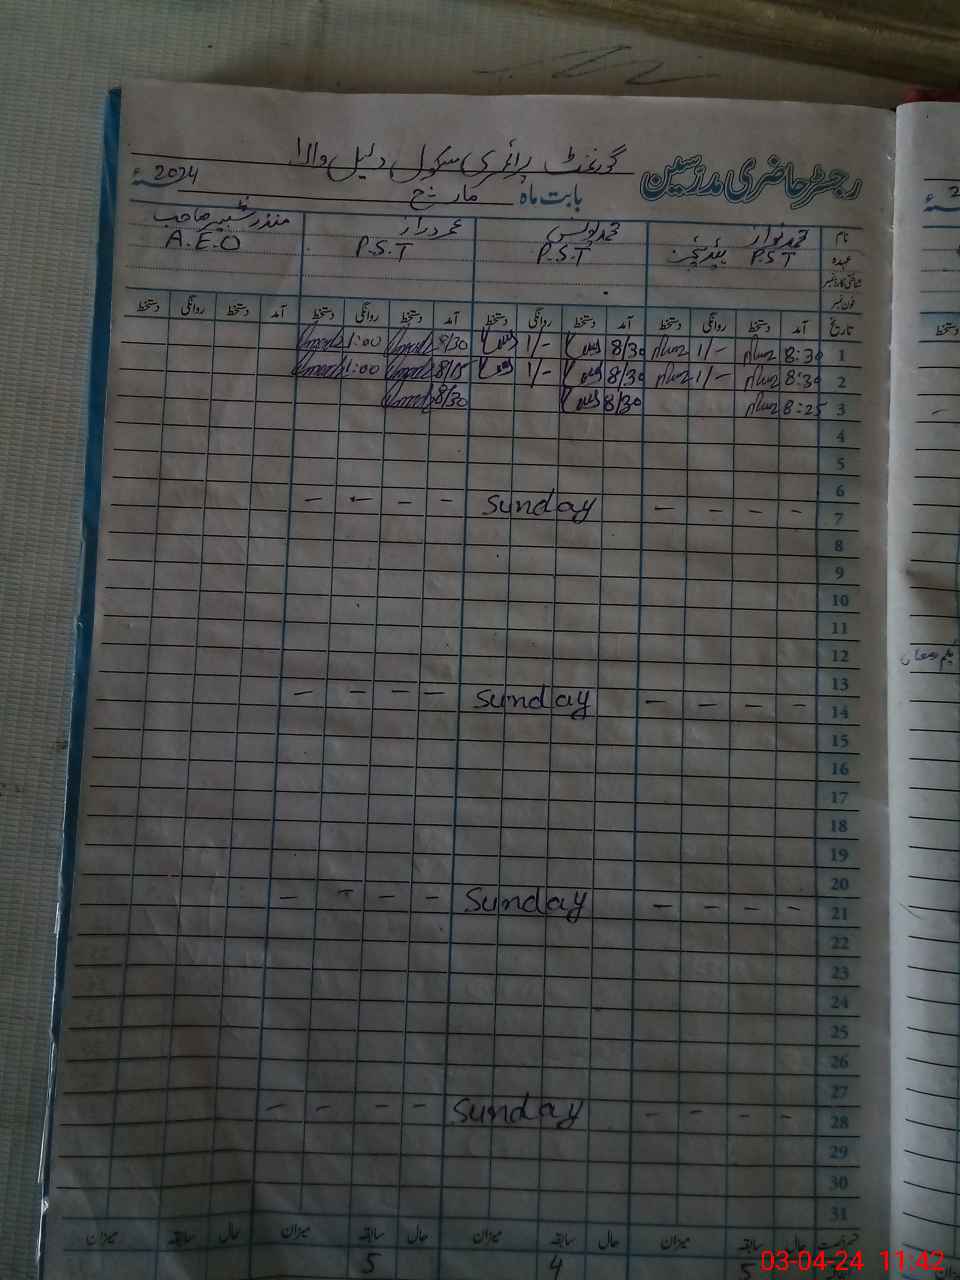 گورنمنٹ پرائمری سکول دلیل والا
رجسٹر حاضری مدرسین
بابت ماہ مارچ 2024ء
نام محمد نواز محمد یونس عمر دراز منذر شبیر صاحب
عہدہ P.S.T P.S.T P.S.T A.E.O
شناختی کارڈ نمبر
فون نمبر
تاریخ آمد دستخط روانگی دستخط آمد دستخط روانگی دستخط آمد دستخط روانگی دستخط آمد دستخط روانگی دستخط
1 8:30 1/- 8/30 1/- 8/30 1:00
2 8:30 1/- 8/30 1/- 8/15 1:00
3 8:25 8/30 8/30
4
5
6
7 - - - - Sunday - - - -
8
9
10
11
12
13
14 - - - - Sunday - - - -
15
16
17
18
19
20
21 - - - - Sunday - - - -
22
23
24
25
26
27
28 - - - - Sunday - - - -
29
30
31
حال سابقہ میزان حال سابقہ میزان حال سابقہ میزان حال سابقہ میزان
5 4 5
03-04-24 11:42